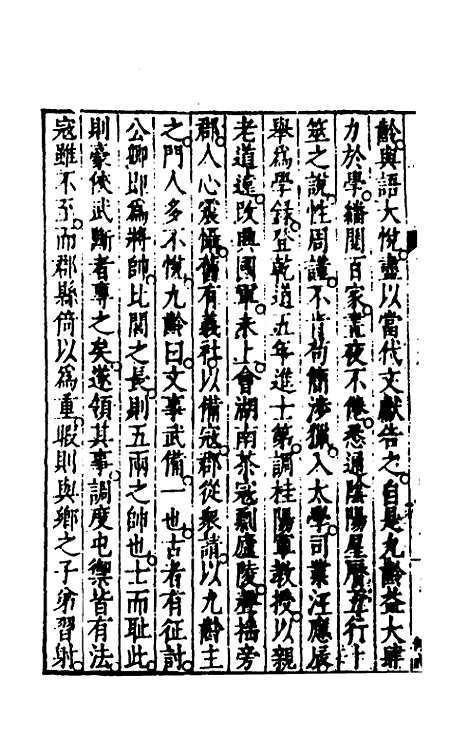 齡與語大悅盡以當代文獻告之自是九齡益大肆
力於學繙閱百家晝夜不倦悉通陰陽星曆五行卜
筮之說性周謹不肯苟簡涉獵入太學司業汪應辰
舉爲學錄登乾道五年進士第調桂陽軍教授以親
老道遠改興國軍未上會湖南茶寇剽廬陵聲搖旁
郡人心震懾舊有義社以備寇郡從衆請以九齡主
之門人多不悅九齡曰文事武備一也古者有征討
公卿卽爲將帥比閭之長則五兩之帥也士而恥此
則豪俠武斷者專之矣遂領其事調度屯禦皆有法
寇雖不至而郡縣倚以爲重暇則與鄉之子弟習射